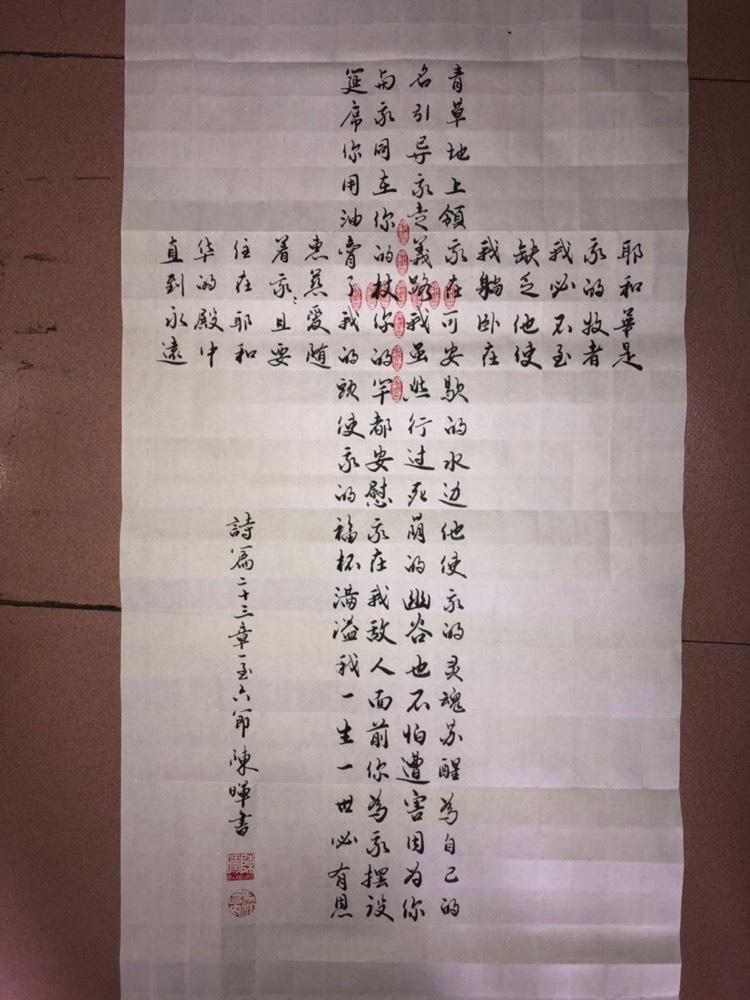 耶和華是
我的牧者
我必不至
缺乏他使
我躺卧在
青草地上領我在可安歇的水边他使我的灵魂苏醒為自己的
名引导我走義路我虽然行过死荫的幽谷也不怕遭害因为你
与我同在你的杖你的竿都安慰我在我敌人面前你為我摆设
筵席你用油膏了我的頭使我的福杯满溢我一生一世必有恩
惠慈愛随
着我々且要
住在耶和
华的殿中
直到永遠
詩篇二十三章一至六節 陳暉書